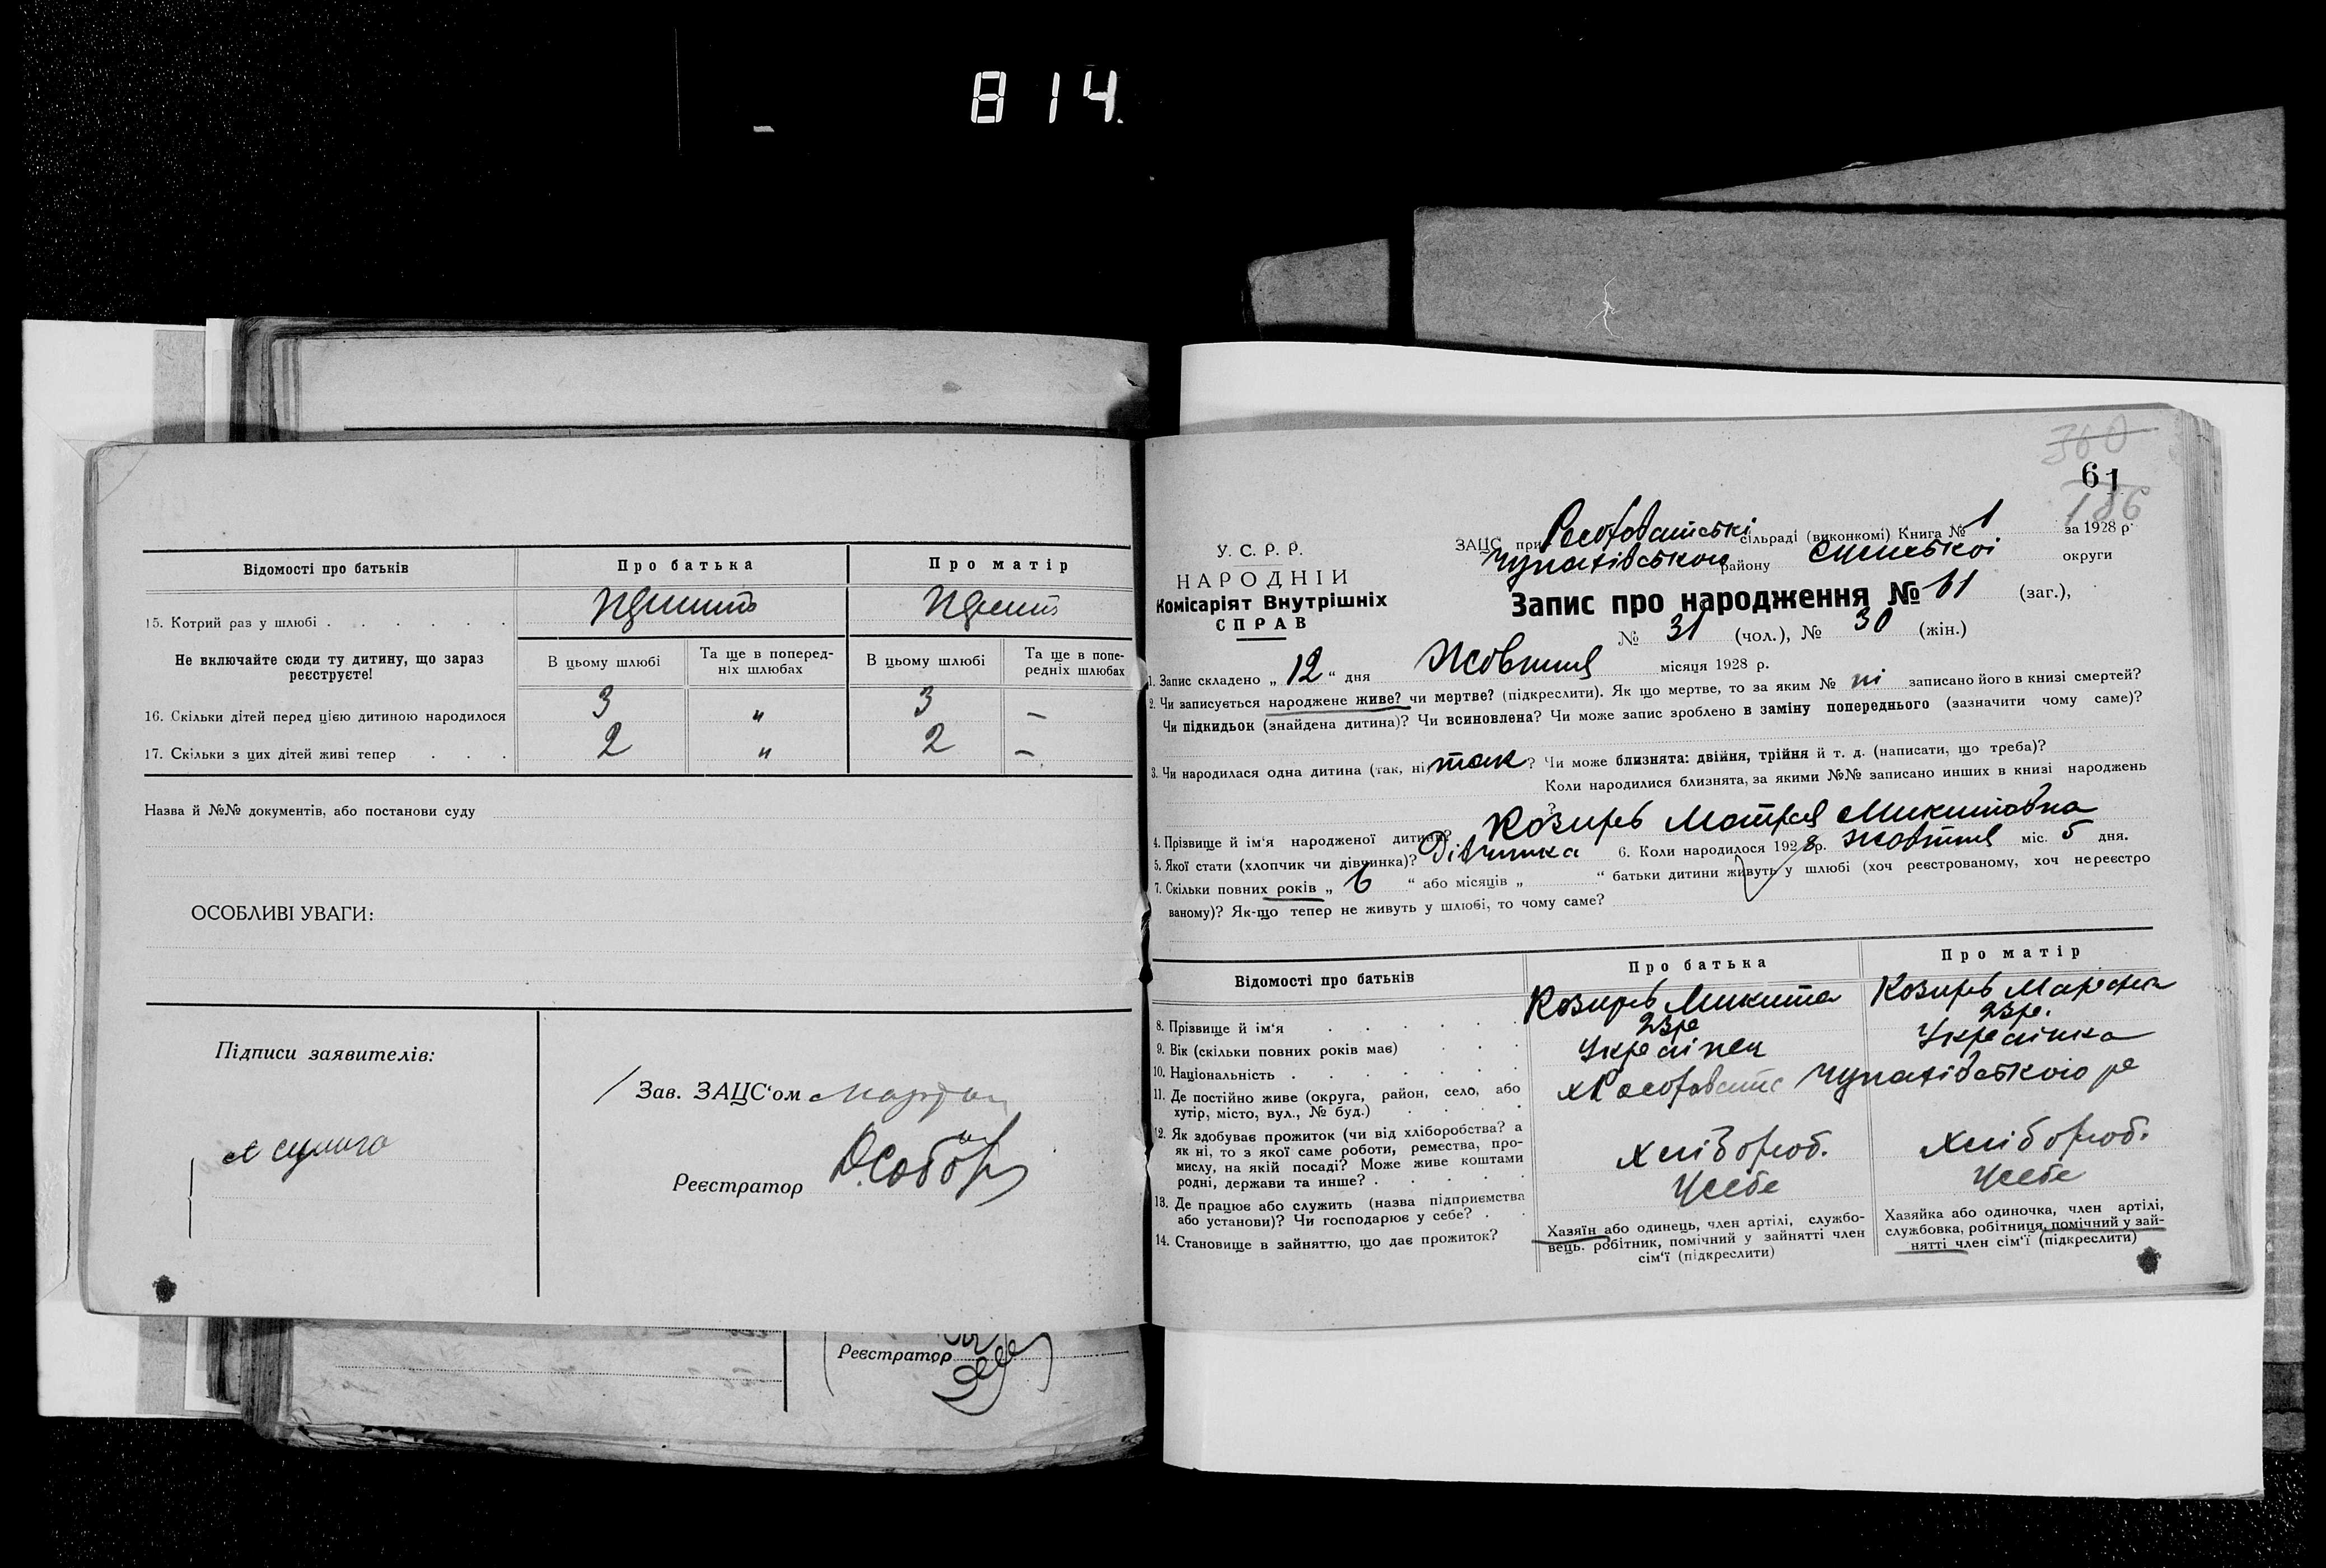 814.
Відомості про батьків
Про батька
Про матір
15. Котрий раз у шлюбі . . . . . .
Не включайте сюди ту дитину, що зараз реєструєте!
В цьому шлюбі
Та ще в поперед-
ніх шлюбах
В цьому шлюбі
Та ще в попе-
редніх шлюбах
16. Скільки дітей перед цією дитиною народилося 3 „ 3 —
17. Скільки з цих дітей живі тепер . . . 2 „ 2 —
Назва й №№ документів, або постанови суду
ОСОБЛИВІ УВАГИ:
Підписи заявителів:
Зав. ЗАЦС'ом
Реєстратор
Реєстратор
360
61
186
У. С. Р. Р.
НАРОДНІЙ
Комісаріят Внутрішніх
СПРАВ
ЗАЦС при сільраді (виконкомі) Книга № 1 за 1928 р.
району округи
Запис про народження № 61 (заг.),
№ 31 (чол.), № 30 (жін.)
1. Запис складено „ 12 “ дня Жовтня місяця 1928 р.
2. Чи записується народжене живе? чи мертве? (підкреслити). Як що мертве, то за яким № ні записано його в книзі смертей?
Чи підкидьок (знайдена дитина)? Чи всиновлена? Чи може запис зроблено в заміну попереднього (зазначити чому саме)?
3. Чи народилася одна дитина (так, ні) так ? Чи може близнята: двійня, трійня й т. д. (написати, що треба)?
Коли народилися близнята, за якими №№ записано инших в книзі народжень
?
4. Прізвище й ім'я народженої дитини? Козирь Мотря Микитовна
5. Якої стати (хлопчик чи дівчинка)? Дівчинка 6. Коли народилося 1928 р. жовтня міс. 5 дня.
7. Скільки повних років „ 6 “ або місяців „ “ батьки дитини живуть у шлюбі (хоч реєстрованому, хоч нереєстро
ваному)? Як-що тепер не живуть у шлюбі, то чому саме?
Відомості про батьків
Про батька
Про матір
8. Прізвище й ім'я . . . . . . Козирь Микита Козирь
9. Вік (скільки повних років має) . . . 23
10. Національність . . . . . . . Українец Українка
11. Де постійно живе (округа, район, село, або
хутір, місто, вул., № буд.) . . . .
12. Як здобуває прожиток (чи від хліборобства? а
як ні, то з якої саме роботи, ремества, про-
мислу, на якій посаді? Може живе коштами
родні, держави та инше? . . . . . Хлібороб. Хлібороб.
13. Де працює або служить (назва підприємства
або установи)? Чи господарює у себе? . . Усебе Усебе
14. Становище в зайняттю, що дає прожиток?
Хазяїн або одинець, член артілі, службо-
вець. робітник, помічний у зайнятті член
сім'ї (підкреслити)
Хазяйка або одиночка, член артілі,
службовка, робітниця, помічний у зай-
нятті член сім'ї (підкреслити)